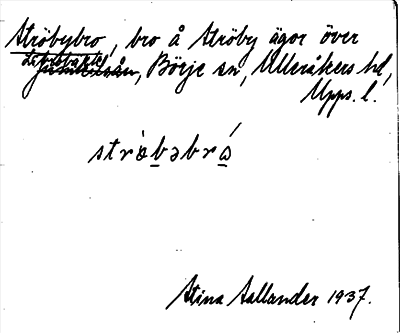 Ströbybro, bro å Ströby ägor över
Librobäck
Jumkilsån, Börje sn, Ulleråkers hd,
Upps. l.
strö̀bəbró
Stina Sallander 1937.